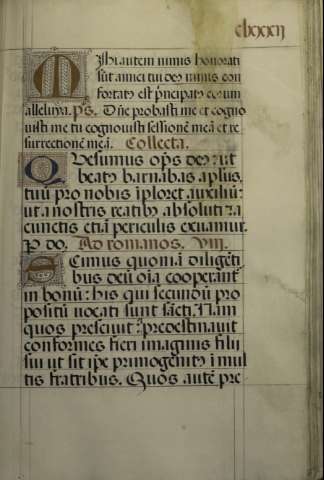 clxxxii
Mihi autem nimis honorati
sūt amici tui deꝰ nimis con
fortatꝰ est pⁱncipatꝰ eorum
alleluya. ps. Dn̄e probasti me et cogno
uisti me tu cognouisti sessionē meā et re
surrectionē meā. Collecta.
Quesumus op̄s deꝰ: ut
beatꝰ barnabas ap̄lus,
tuū pro nobis īploret auxiliū:
ut a nostris reatibꝰ absoluti: a
cunctis etiā periculis exuamur.
P do. Ad romanos. VIII.
Scimus quoniā diligēti
bus deū oīa cooperant᷑
in bonū: his qui secundū pro
positū uocati sunt sācti. Nam
quos presciuit: ⁊ predestinauit
conformes fieri imaginis filii
sui ut sit ip̄e primogenitꝰ ī mul
tis fratribus. Quos autē pre